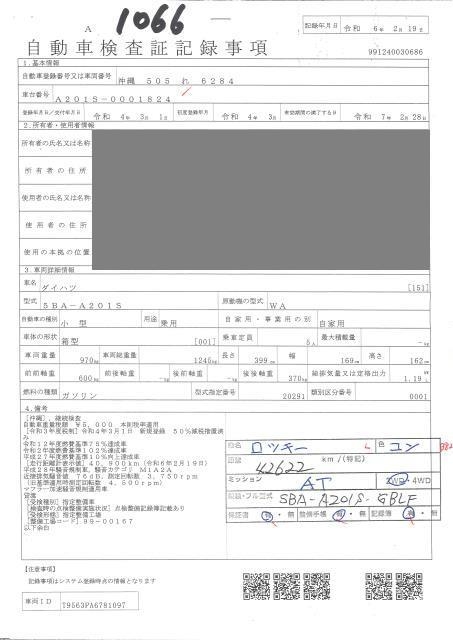 A 1066
記録年月日 令和 6年 2月 19日
自動車検査証記録事項
991240030686
1.基本情報
自動車登録番号又は車両番号 沖縄 505 れ 6284
車台番号 A201S-0001824
登録年月日/交付年月日 令和 4年 3月 1日 初度登録年月 令和 4年 3月 有効期間の満了する日 令和 7年 2月 28日
2.所有者・使用者情報
所有者の氏名又は名称
所有者の住所
使用者の氏名又は名称
使用者の住所
使用の本拠の位置
3.車両詳細情報
車名 ダイハツ [151]
型式 5BA-A201S 原動機の型式 WA
自動車の種別 小型 用途 乗用 自家用・事業用の別 自家用
車体の形状 箱型 [001] 乗車定員 5人 最大積載量 -kg
車両重量 970kg 車両総重量 1245kg 長さ 399cm 幅 169cm 高さ 162cm
前前軸重 600kg 前後軸重 -kg 後前軸重 -kg 後後軸重 370kg 総排気量又は定格出力 1.19L
燃料の種類 ガソリン 型式指定番号 20291 類別区分番号 0001
4.備考
[沖縄],継続検査
自動車重量税額 ¥5,000 本則税率適用
[令和3年度税制]令和4年3月1日 新規登録 50%減税措置済
み
令和12年度燃費基準75%達成車
令和2年度燃費基準102%達成車
平成27年度燃費基準10%向上達成車
[走行距離計表示値]40,900km(令和6年2月19日)
平成28年騒音規制車,騒音カテゴリ M1A2A
近接排気騒音値 76dB,測定回転数 3,750rpm
[旧基準適用時測定回転数 4,500rpm]
マフラー加速騒音規制適用車
[受検種別]指定整備車
[検査時の点検整備実施状況]点検整備記録簿記載あり
[受検形態]指定整備工場
[整備工場コード]99-00167
以下余白
車名 ロッキー 色 コン
距離 42622 km/(特記)
ミッション AT 2WD・4WD
認識・フル型式 5BA-A201S-GBLF
保証書 有・無 整備手帳 有・無 記録簿 有・無
[注意事項]
記録事項はシステム登録時点の情報となります
車両ID T9563PA6781097